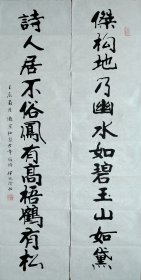 傑构地乃幽水如碧玉山如黛
詩人居不俗鳳有高梧鶴有松